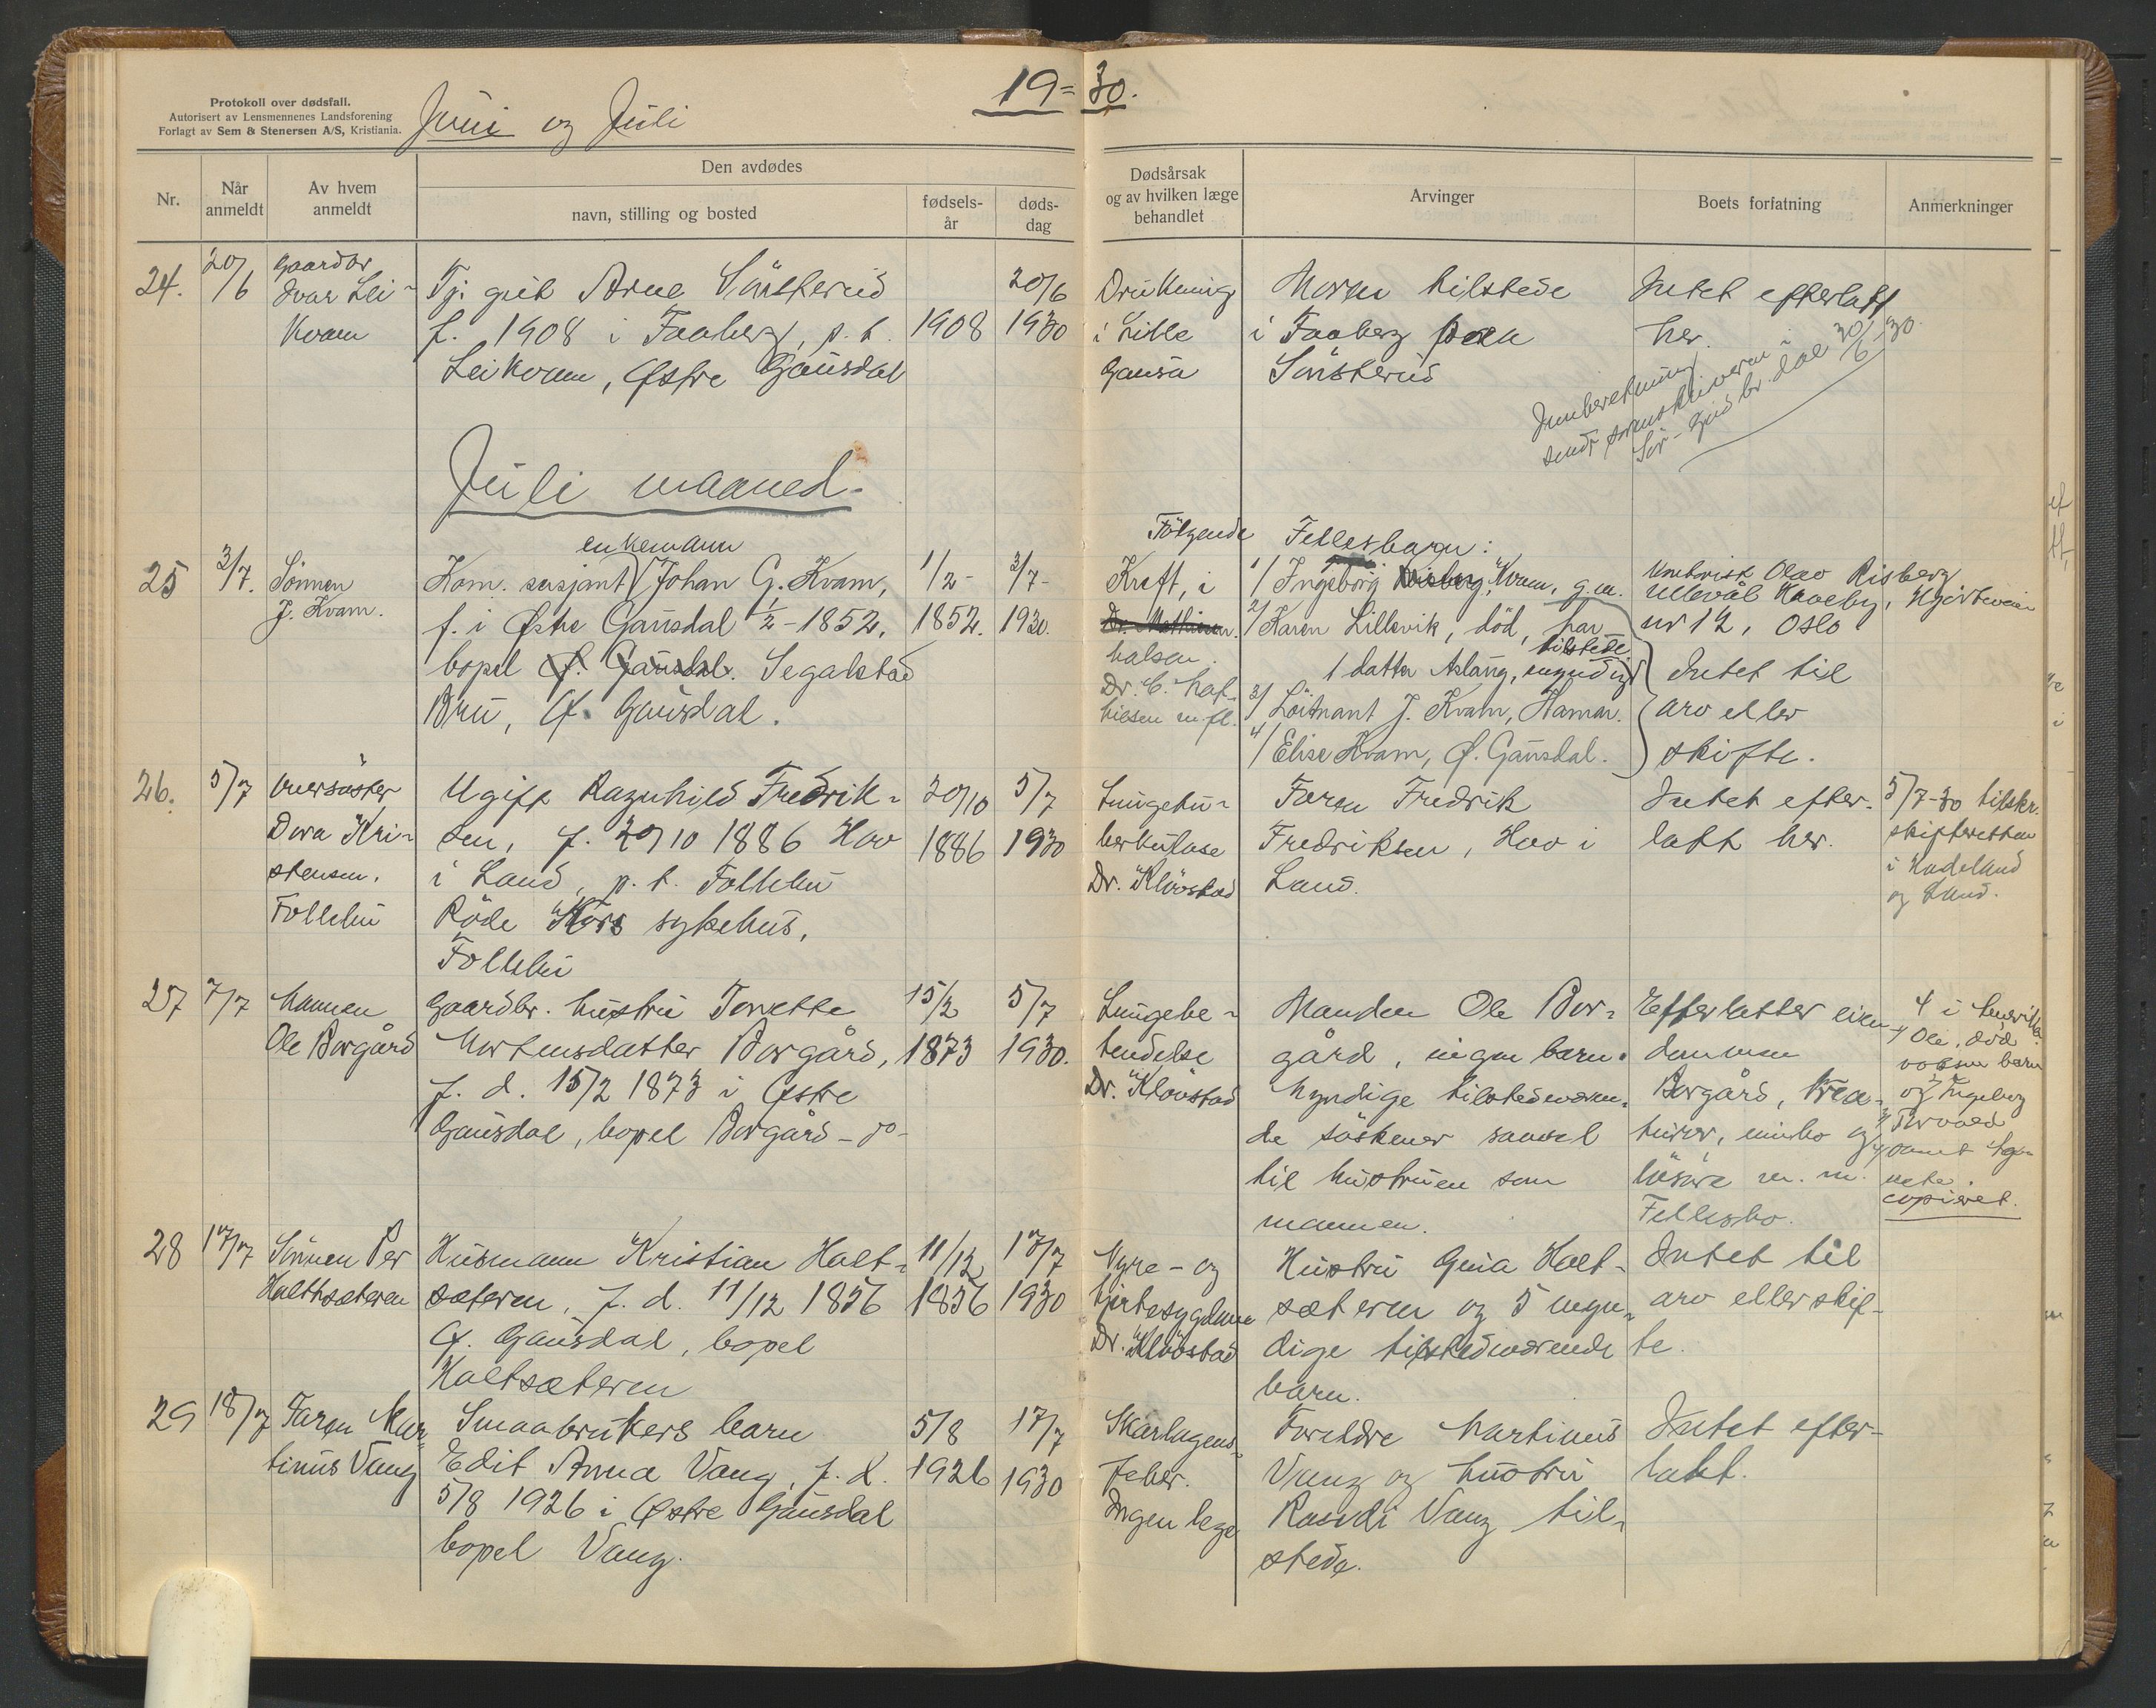 Protokoll over dødsfall.
Autorisert av Lensmennenes Landsforening
Forlagt av Sem & Stenersen A/S, Kristiania.
Juni og Juli
19=30.
Nr.
Når anmeldt
Av hvem anmeldt
Den avdødes
navn, stilling og bosted
fødsels-år
døds-dag
Dødsårsak og av hvilken læge behandlet
Arvinger
Boets forfatning
Anmerkninger
24.
20/6
Gaardbr
Ivar Lei-
kvam
Tj. gut Arne Sönsterud
f. 1908 i Faaberg, p. t.
Leikvam, Østre Gausdal
1908
20/6
1930
Drukning
i Lille
Gausa
Moren tilstede
i Faaberg
Sönsterud
Intet efterlatt
her.
Innberetning
sendt sorenskriveren i
Sör-Gudbr.dal 30/6-30.
Juli maaned.
25
3/7.
Sönnen
J. Kvam.
enkemann
Kom. sersjant Johan G. Kvam,
f. i Østre Gausdal 1/2-1852,
bopel Ø. Gausdal. Segalstad
Bru, Ø. Gausdal.
1/2-
1852.
3/7-
1930.
Kreft, i
Dr. Mathiesen.
halsen.
Dr. C. Mat-
hiesen m. fl.
Fölgende Fellesbarn:
1/ Ingeborg Risberg, Kvam, g. m.
2/ Karen Lillevik, död, har
tilstede
1 datter Aslaug, myndig
3/ Löitnant J. Kvam, Hamar.
4/ Elise Kvam, Ø. Gausdal.
Olav Risberg
Ullevål Haveby,
nr 12, Oslo
Intet til
arv eller
skifte.
26.
5/7
Oversöster
Dora Kri-
stensen.
Follebu
Ugift Ragnhild Fredrik-
sen, f. 20/10 1886 Hov
i Land, p. t. Follebu
Röde Kors sykehus,
Follebu
20/10
1886
5/7
1930
Lungetu-
berkulose
Dr. Klövstad
Faren Fredrik
Fredriksen, Hov i
Land.
Intet efter-
latt her.
5/7-30 tilskr.
skifteretten
i Hadeland
og Land.
27
7/7
Mannen
Ole Borgård
Gaardbr. hustru Torette
Mortensdatter Borgård,
f. d. 15/2 1873 i Østre
Gausdal, bopel Borgård - do -
15/2
1873
5/7
1930.
Lungebe-
tendelse
Dr. Klövstad
Manden Ole Bor-
gård, ingen barn.
Myndige tilstedeværen-
de söskener saavel
til hustruen som
mannen.
Efterlatter eien-
dommen
Borgård, krea-
turer, innbo og
lösöre m. m.
Fellesbo.
4 i Amerika
1/ Ole, död
voksne barn
2/ Ingeborg
3/ Torvald
copieret.
28
17/7
Sönnen Per
Holthsæteren
Husmann Kristian Holt-
sæteren, f. d. 11/12 1856
Ø. Gausdal, bopel
Holtsæteren
11/12
1856
17/7
1930
Nyre- og
hjertesygdom
Dr. Klövstad
Hustru Guia Holt-
sæteren og 5 myn-
dige tilstedeværende
barn.
Intet til
arv eller skif-
te.
29
18/7
Faren Mar-
tinus Vang
Smaabrukers barn
Edit Anna Vang, f. d.
5/8 1926 i Østre Gausdal
bopel Vang.
5/8
1926
17/7
1930
Skarlagens-
feber.
Ingen lege
Foreldre Martinus
Vang og hustru
Randi Vang til-
stede.
Intet efter-
latt.